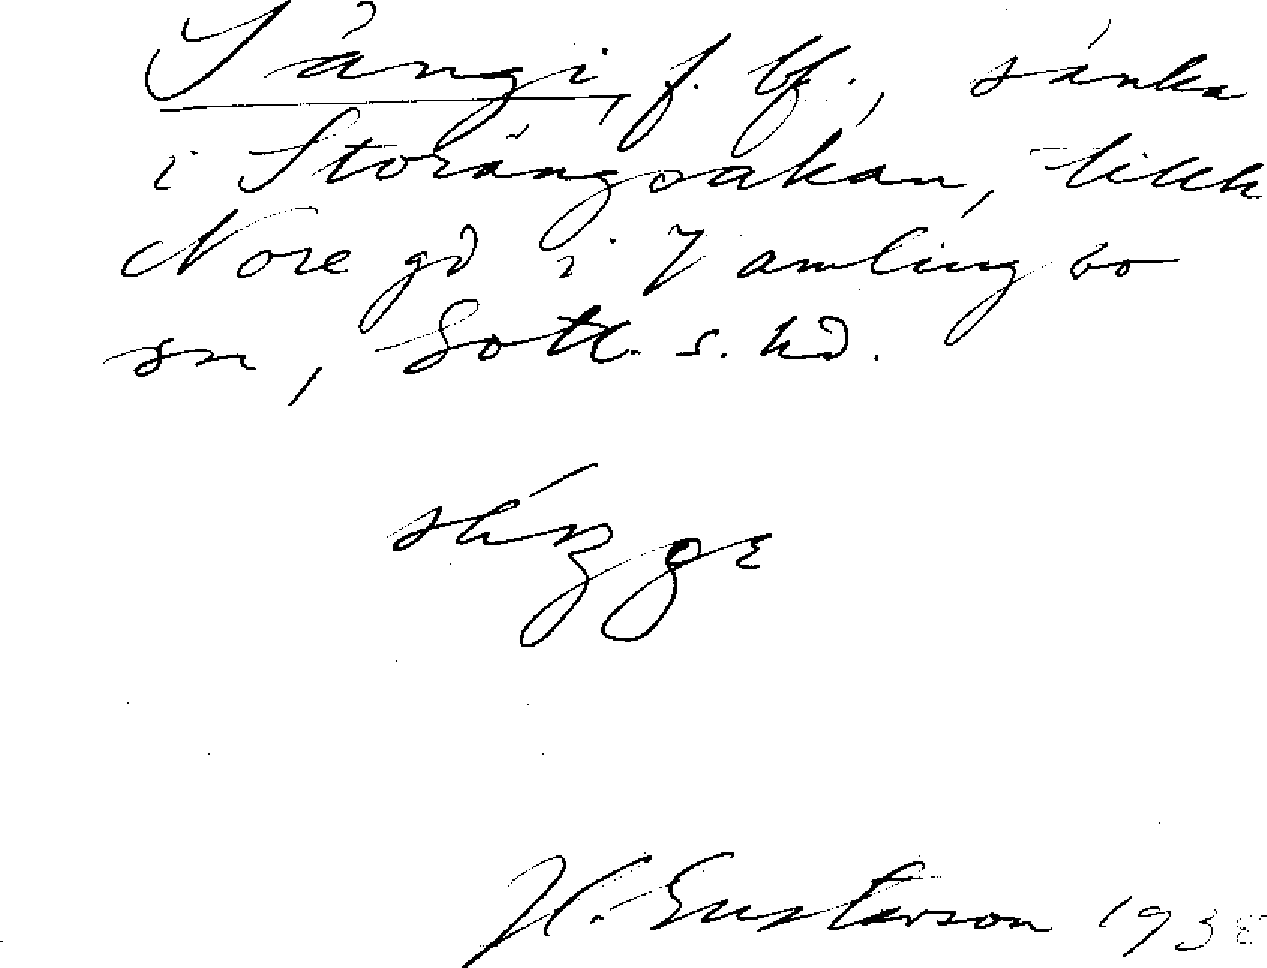 Sångi, f. bf., sänka
i Storängsåkan, tillh
Nore gd i Hamlingbo
sn, Gotl. s. hd.
H. Gustavson 1938